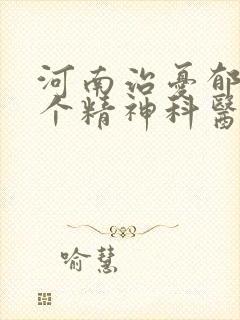 河南治憂郁
个精神科醫
喻慧